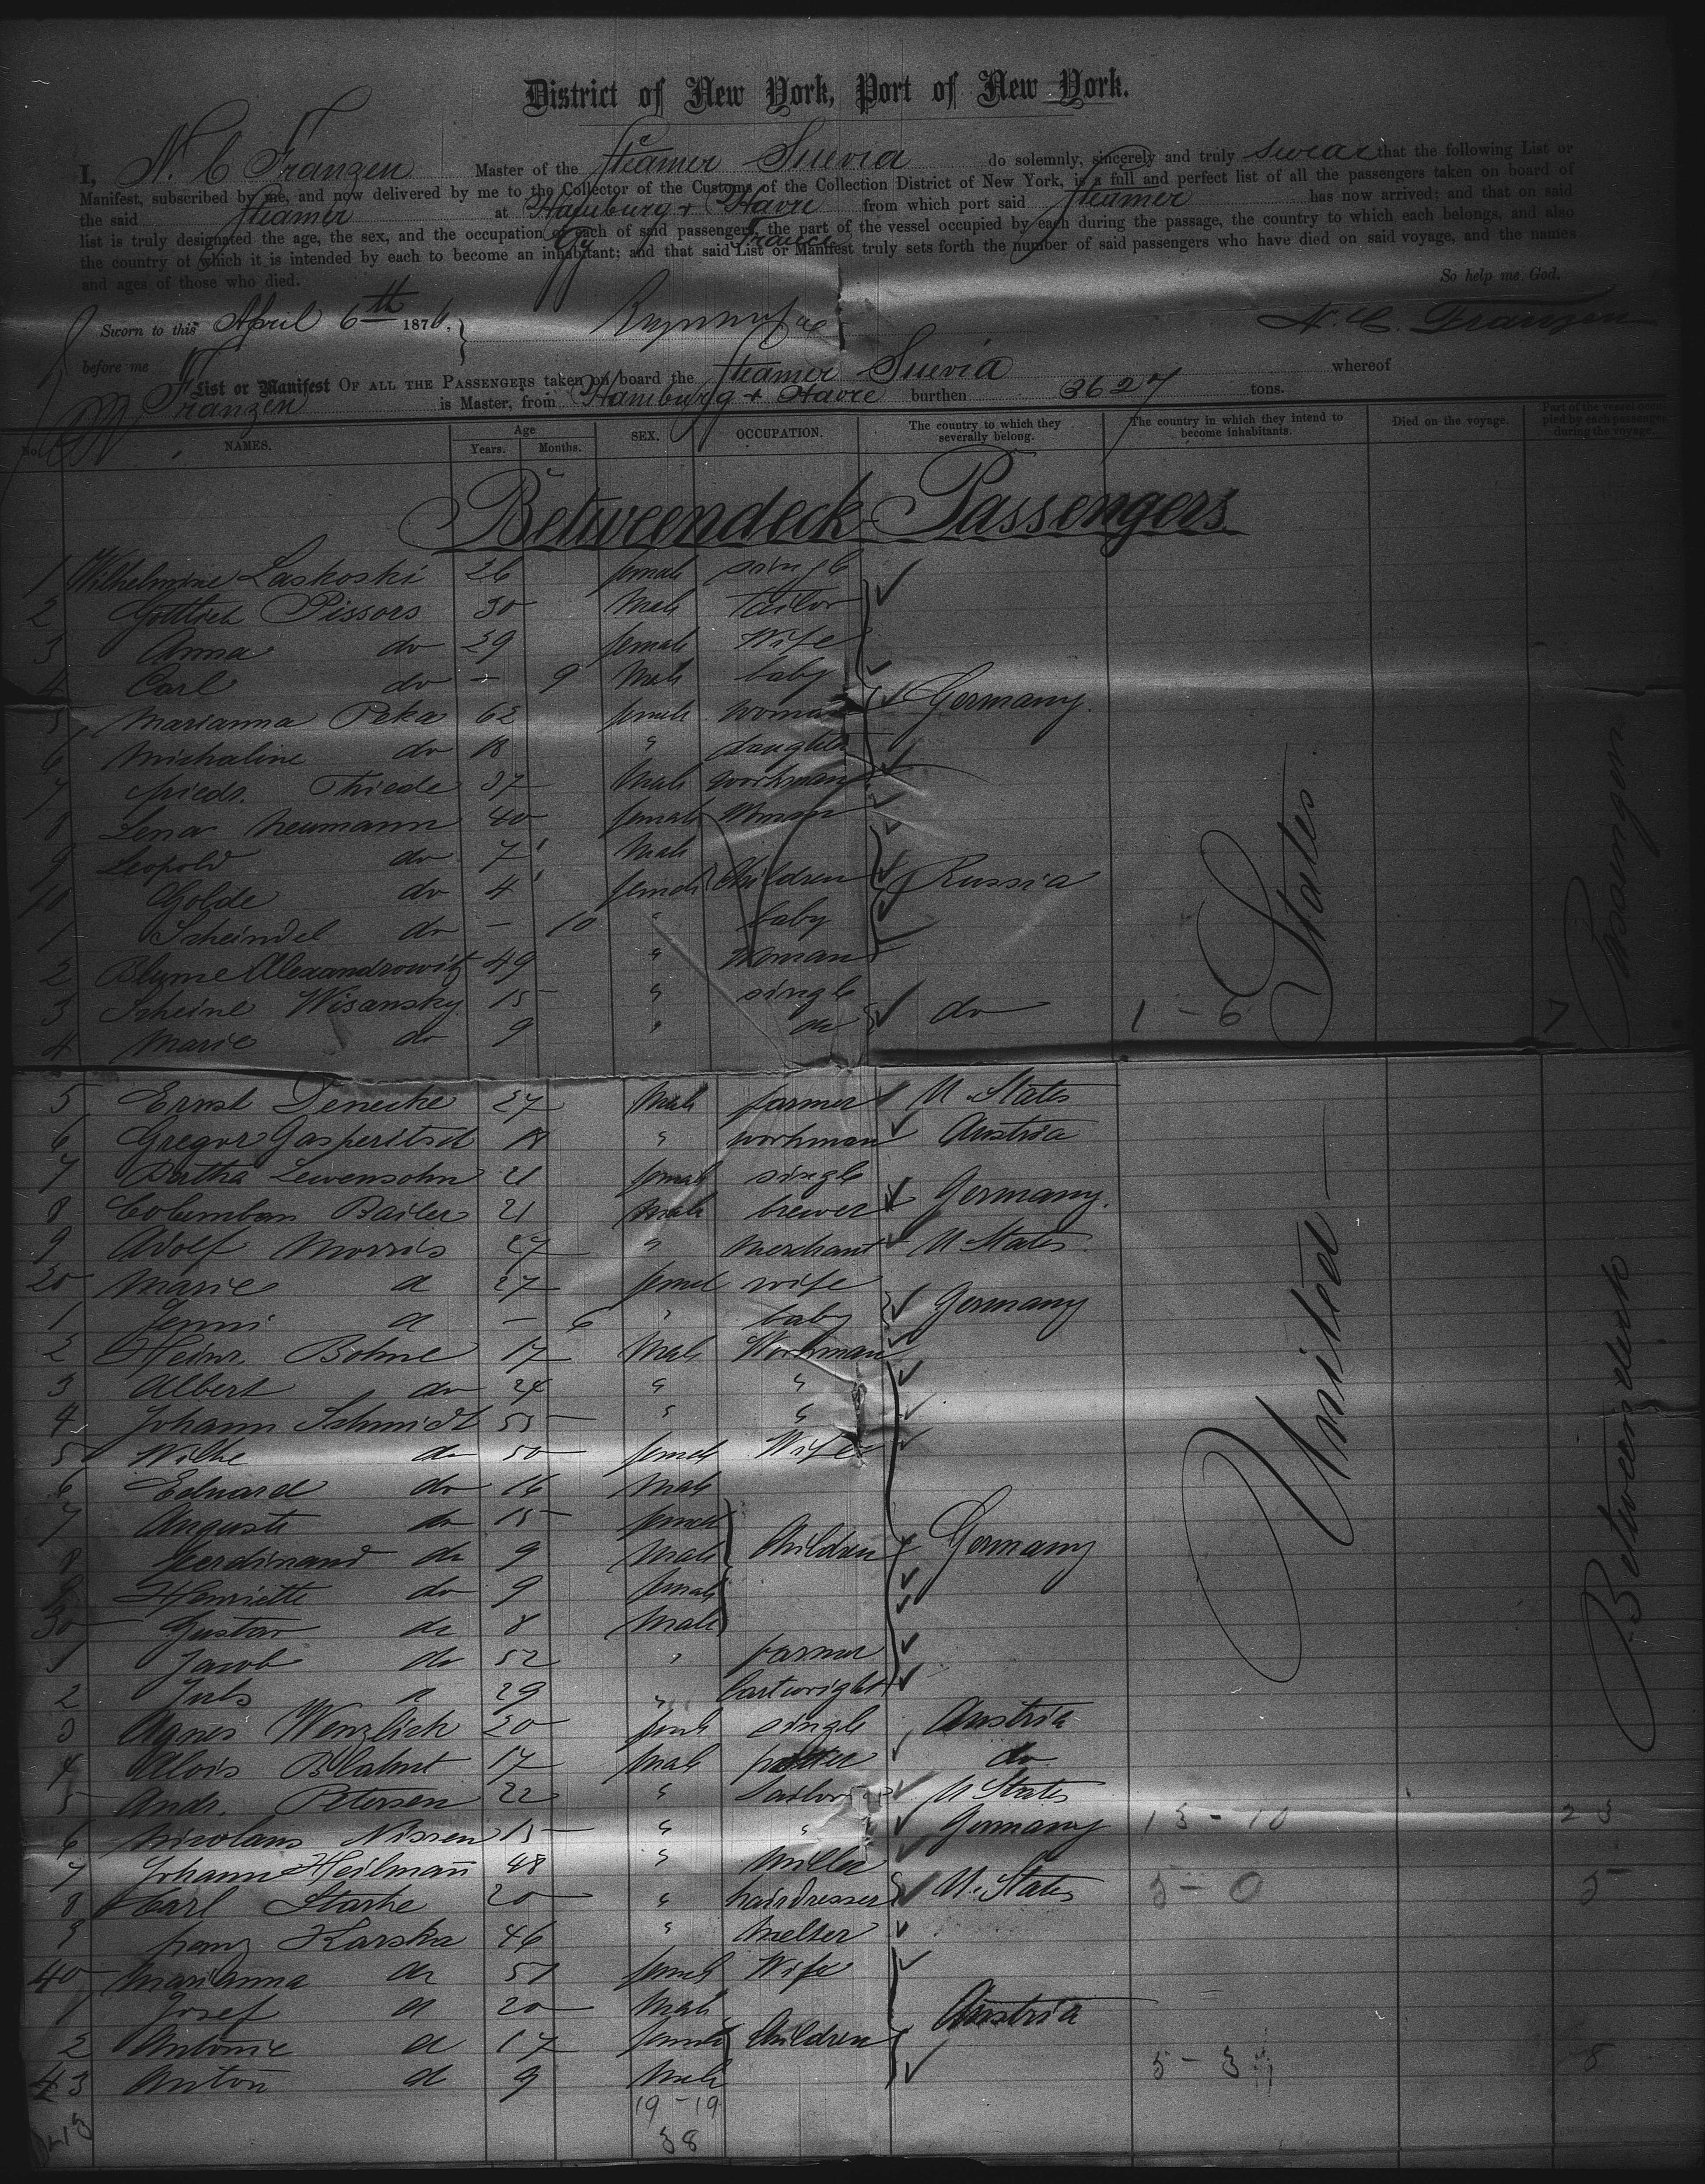 District of New York, Port of New York.
I, N. C. Franzen Master of the Steamer Suevia do solemnly, sincerely and truly swear that the following List or
Manifest, subscribed by me, and now delivered by me to the Collector of the Customs of the Collection District of New York, is a full and perfect list of all the passengers taken on board of
the said Steamer at Hamburg & Havre from which port said Steamer has now arrived; and that on said
list is truly designated the age, the sex, and the occupation of each of said passengers, the part of the vessel occupied by each during the passage, the country to which each belongs, and also
the country of which it is intended by each to become an inhabitant; and that said List or Manifest truly sets forth the number of said passengers who have died on said voyage, and the names
and ages of those who died.
So help me God.
Sworn to this April 6th 1876, N. C. Franzen
before me
List or Manifest OF ALL THE PASSENGERS taken on board the Steamer Suevia whereof
Franzen is Master, from Hamburg & Havre burthen 3627 tons.
No. NAMES. Age Years. Months. SEX. OCCUPATION. The country to which they severally belong. The country in which they intend to become inhabitants. Died on the voyage. Part of the vessel occupied by each passenger during the voyage.
Betweendeck Passengers
1 Wilhelmine Laskoski 26 female single
2 Gottlieb Pissors 30 Male tailor
3 Anna do 29 female Wife
4 Carl do - 9 Male baby
5 Marianna Peka 62 female woman Germany.
6 Michaline do 18 " daughter
7 Friedr. Thiede 37 Male workman
8 Lena Neumann 40 female Woman
9 Leopold do 7 Male
10 Golde do 4 female Children Russia
1 Scheindel do - 10 " baby
2 Blume Alexandrowitz 49 " woman
3 Scheine Wisansky 15 " single do 1 - 6 7
4 Marie do 9 " do
5 Ernst Denecke 27 Male farmer U. States
6 Gregor Gasperitsch 18 " workman Austria
7 Bertha Lewensohn 21 female single
8 Columban Bailer 21 Male brewer Germany.
9 Adolf Morris 27 " Merchant U States
20 Marie do 27 female wife
1 Jenni do - 6 " baby Germany
2 Heinr. Bohne 17 Male Workman
3 Albert do 24 " "
4 Johann Schmidt 55 " "
5 Wilhe do 50 female Wife
6 Eduard do 16 Male
7 Auguste do 15 female
8 Ferdinand do 9 Male Children Germany
9 Henriette do 9 female
30 Gustav do 8 Male
1 Jacob do 52 " farmer
2 Juls do 29 " Cartwright
3 Agnes Wenzlich 20 female single Austria
4 Alois Blahut 17 Male potter do
5 Andr. Petersen 22 " Sailor U States
6 Nicolaus Nissen 15 " " Germany 13 - 10 23
7 Johann Heilmann 48 " Miller
8 Carl Starke 20 " hairdresser U. States 5 - 0 5
9 Franz Karska 46 " Melter
40 Marianna do 51 female Wife
1 Josef do 20 Male Austria
2 Antonie do 17 female Children
43 Anton do 9 Male 5 - 3 8
19 - 19
38
United States
Betweendeck Passengers